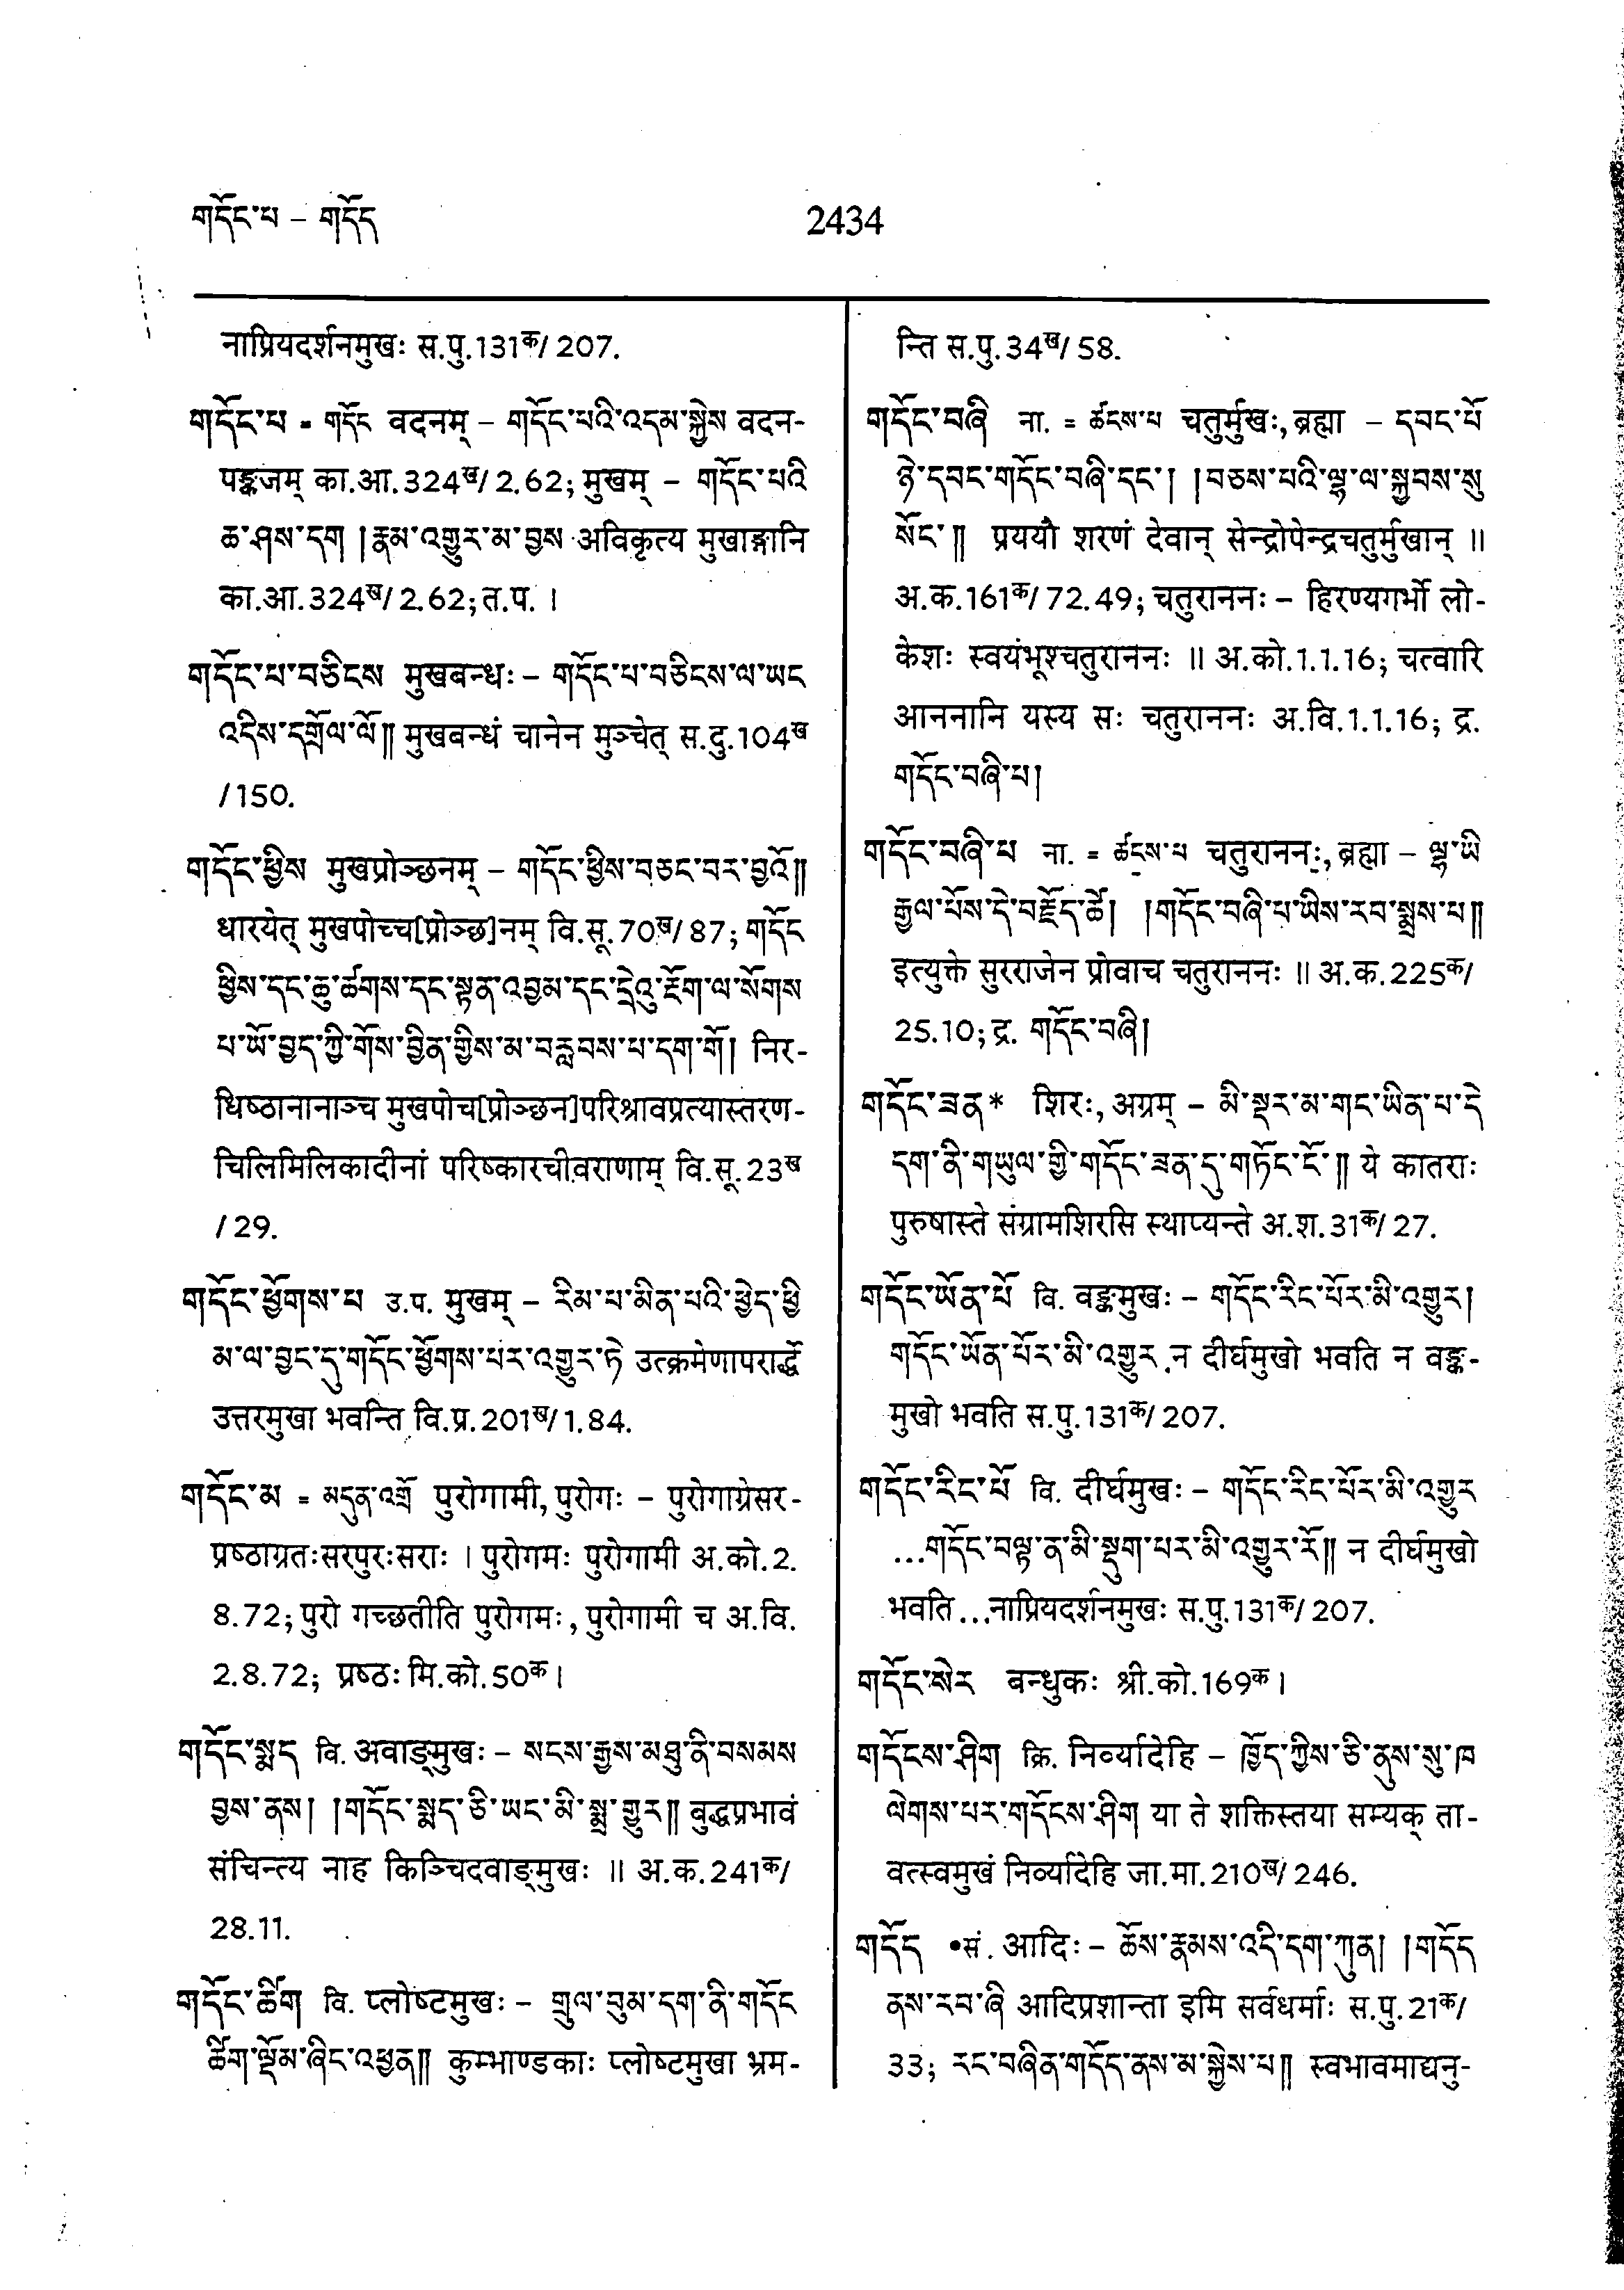 གདོང་པ – གདོད
2434
नाप्रियदर्शनमुखः स.पु.131क/207.
གདོང་པ = གདོང वदनम् – གདོང་པའི་འདམ་སྐྱེས वदन-
पङ्कजम् का.आ.324ख/2.62; मुखम् – གདོང་པའི
ཆ་ཤས་དག །རྣམ་འགྱུར་མ་བྱས अविकृत्य मुखाङ्गानि
का.आ.324ख/2.62; त.प. ।
གདོང་པ་བཅིངས मुखबन्धः – གདོང་པ་བཅིངས་ལ་ཡང
འདིས་དགྲོལ་ལོ༎ मुखबन्धं चानेन मुञ्चेत् स.दु.104ख
/150.
གདོང་ཕྱིས मुखप्रोञ्छनम् – གདོང་ཕྱིས་བཅང་བར་བྱའོ༎
धारयेत् मुखपोच्च[प्रोञ्छ]नम् वि.सू.70ख/87; གདོང
ཕྱིས་དང་ཆུ་ཚགས་དང་སྟན་འབྱམ་དང་དྲེའུ་རྔོག་ལ་སོགས
པ་ཡོ་བྱད་ཀྱི་གོས་བྱིན་གྱིས་མ་བརླབས་པ་དག་གོ། निर-
धिष्ठानानाञ्च मुखपोच[प्रोञ्छन]परिश्रावप्रत्यास्तरण-
चिलिमिलिकादीनां परिष्कारचीवराणाम् वि.सू.23ख
/29.
གདོང་ཕྱོགས་པ उ.प. मुखम् – རིམ་པ་མིན་པའི་ཕྱེད་ཕྱི
མ་ལ་བྱང་དུ་གདོང་ཕྱོགས་པར་འགྱུར་ཏེ उत्क्रमेणापरार्द्धे
उत्तरमुखा भवन्ति वि.प्र.201ख/1.84.
གདོང་མ = མདུན་འགྲོ पुरोगामी, पुरोगः – पुरोगाग्रेसर-
प्रष्ठाग्रतःसरपुरःसराः । पुरोगमः पुरोगामी अ.को.2.
8.72; पुरो गच्छतीति पुरोगमः, पुरोगामी च अ.वि.
2.8.72; प्रष्ठः मि.को.50क।
གདོང་སྨད वि. अवाङ्मुखः – སངས་རྒྱས་མཐུ་ནི་བསམས
བྱས་ནས། །གདོང་སྨད་ཅི་ཡང་མི་སྨྲ་གྱུར༎ बुद्धप्रभावं
संचिन्त्य नाह किञ्चिदवाङ्मुखः ॥ अ.क.241क/
28.11.
གདོང་ཚིག वि. प्लोष्टमुखः – གྲུལ་བུམ་དག་ནི་གདོང
ཚིག་ལྡོམ་ཞིང་འཕྱན༎ कुम्भाण्डकाः प्लोष्टमुखा भ्रम-
न्ति स.पु.34ख/58.
གདོང་བཞི ना. = ཚངས་པ चतुर्मुखः, ब्रह्मा – དབང་པོ
ཉེ་དབང་གདོང་བཞི་དང་། །བཅས་པའི་ལྷ་ལ་སྐྱབས་སུ
སོང་༎ प्रययौ शरणं देवान् सेन्द्रोपेन्द्रचतुर्मुखान् ॥
अ.क.161क/72.49; चतुराननः – हिरण्यगर्भो लो-
केशः स्वयंभूश्चतुराननः ॥ अ.को.1.1.16; चत्वारि
आननानि यस्य सः चतुराननः अ.वि.1.1.16; द्र.
གདོང་བཞི་པ།
གདོང་བཞི་པ ना. = ཚངས་པ चतुराननः, ब्रह्मा – ལྷ་ཡི
རྒྱལ་པོས་དེ་བརྗོད་ཚེ། །གདོང་བཞི་པ་ཡིས་རབ་སྨྲས་པ༎
इत्युक्ते सुरराजेन प्रोवाच चतुराननः ॥ अ.क.225क/
25.10; द्र. གདོང་བཞི།
གདོང་ཟན* शिरः, अग्रम् – མི་སྡར་མ་གང་ཡིན་པ་དེ
དག་ནི་གཡུལ་གྱི་གདོང་ཟན་དུ་གཏོང་ངོ་༎ ये कातराः
पुरुषास्ते संग्रामशिरसि स्थाप्यन्ते अ.श.31क/27.
གདོང་ཡོན་པོ वि. वङ्कमुखः – གདོང་རིང་པོར་མི་འགྱུར།
གདོང་ཡོན་པོར་མི་འགྱུར न दीर्घमुखो भवति न वङ्क-
मुखो भवति स.पु.131क/207.
གདོང་རིང་པོ वि. दीर्घमुखः – གདོང་རིང་པོར་མི་འགྱུར
...གདོང་བལྟ་ན་མི་སྡུག་པར་མི་འགྱུར་རོ༎ न दीर्घमुखो
भवति...नाप्रियदर्शनमुखः स.पु.131क/207.
གདོང་སེར बन्धुकः श्री.को.169क।
གདོངས་ཤིག क्रि. निर्व्यादेहि – ཁྱོད་ཀྱིས་ཅི་ནུས་སུ་ཁ
ལེགས་པར་གདོངས་ཤིག या ते शक्तिस्तया सम्यक् ता-
वत्स्वमुखं निर्व्यादेहि जा.मा.210ख/246.
གདོད •सं. आदिः – ཆོས་རྣམས་འདི་དག་ཀུན། །གདོད
ནས་རབ་ཞི आदिप्रशान्ता इमि सर्वधर्माः स.पु.21क/
33; རང་བཞིན་གདོད་ནས་མ་སྐྱེས་པ༎ स्वभावमाद्यनु-